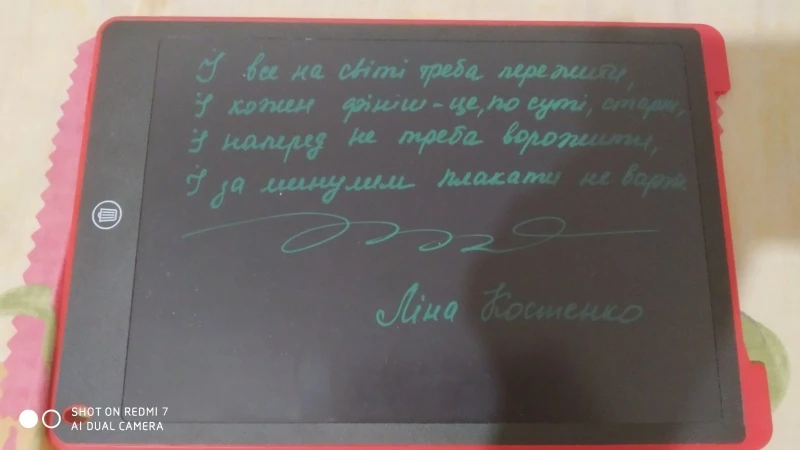 І все на світі треба пережити,
І кожен фініш - це, по суті, старт,
І наперед не треба ворожити,
І за минулим плакати не варто.
Ліна Костенко
SHOT ON REDMI 7
AI DUAL CAMERA